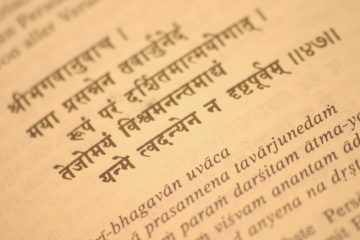 on aller V
श्रीभगवानुवाच ।
मया प्रसन्नेन तवार्जुनेदं
रूपं परं दर्शितमात्मयोगात् ।
तेजोमयं विश्वमनन्तमाद्यं
यन्मे त्वदन्येन न दृष्टपूर्वम् ॥४७॥
rī-bhagavān uvāca
ā prasannena tavārjunedaṁ
ṁ paraṁ darśitam ātma-yo
ṁ viśvam anantam ād
d anyena na dṛṣṭ
te Pers